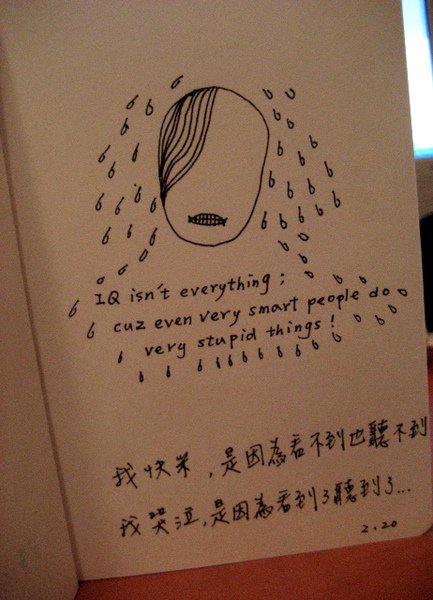 IQ isn't everything;
cuz even very smart people do
very stupid things!
我快樂,是因為看不到也聽不到
我哭泣,是因為看到了聽到了...
2.20